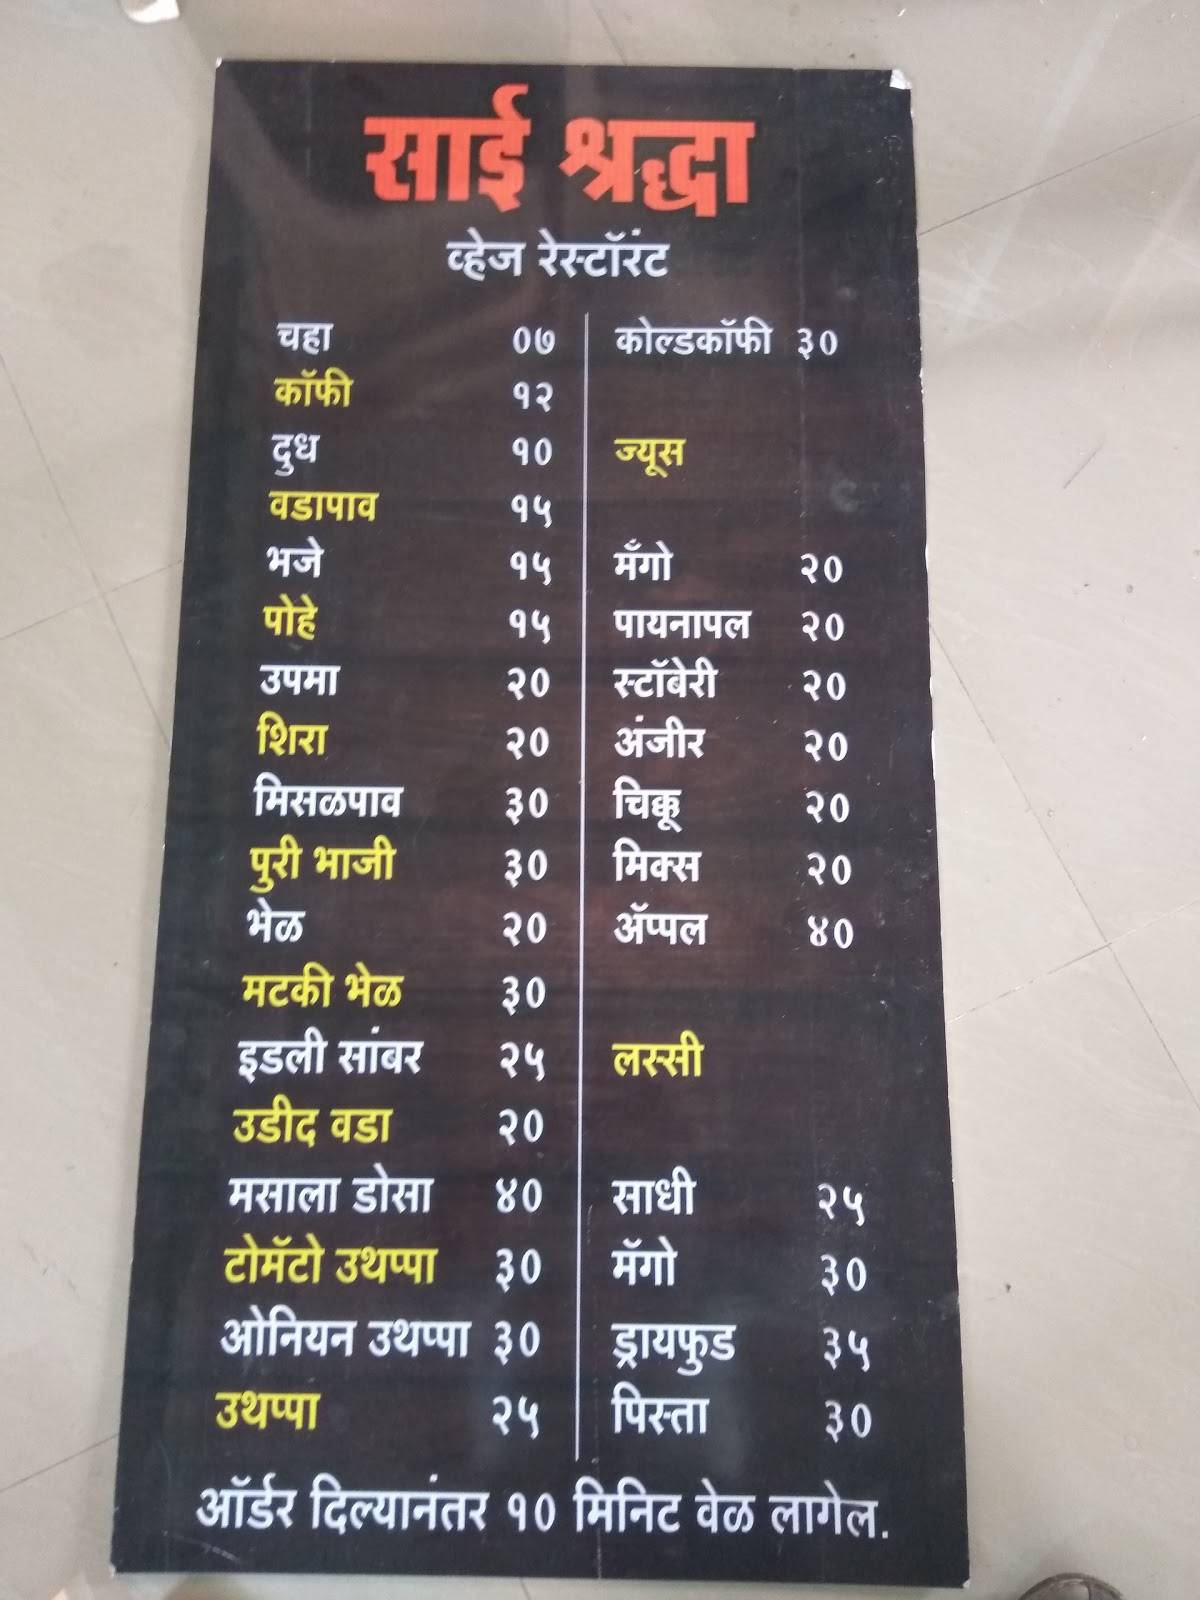 साई श्रद्धा
व्हेज रेस्टॉरंट
चहा ०७
कॉफी १२
दुध १०
वडापाव १५
भजे १५
पोहे १५
उपमा २०
शिरा २०
मिसळपाव ३०
पुरी भाजी ३०
भेळ २०
मटकी भेळ ३०
इडली सांबर २५
उडीद वडा २०
मसाला डोसा ४०
टोमॅटो उथप्पा ३०
ओनियन उथप्पा ३०
उथप्पा २५
कोल्डकॉफी ३०
ज्यूस
मँगो २०
पायनापल २०
स्टॉबेरी २०
अंजीर २०
चिक्कू २०
मिक्स २०
ॲप्पल ४०
लस्सी
साधी २५
मॅगो ३०
ड्रायफुड ३५
पिस्ता ३०
ऑर्डर दिल्यानंतर १० मिनिट वेळ लागेल.